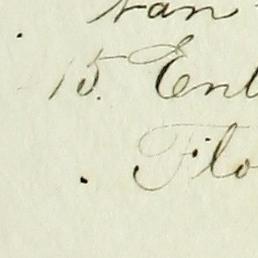 tan
15. Enl
Flo